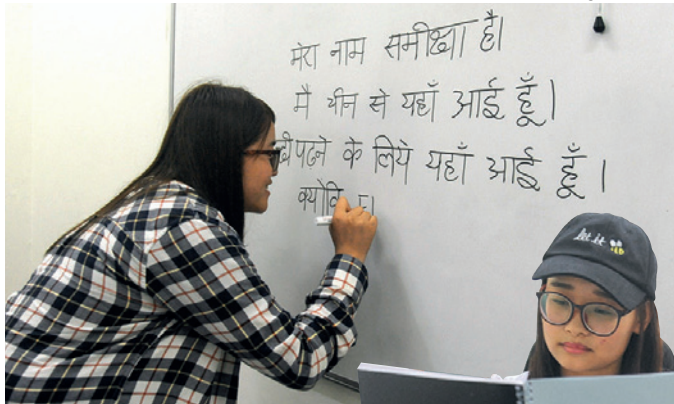 मेरा नाम समीक्षा है।
मै चीन से यहाँ आई हूँ।
पढने के लिये यहाँ आई हूँ।
क्योकि
let it